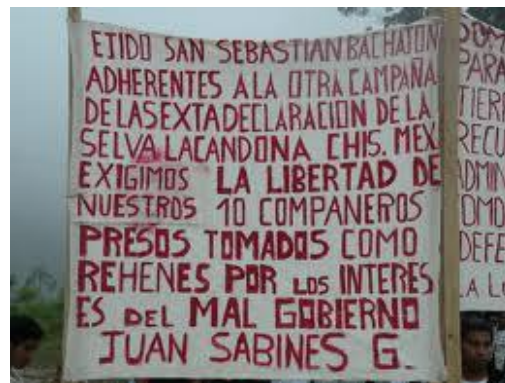 ETIDO SAN SEBASTIAN BACHAJON
ADHERENTES A LA OTRA CAMPAÑA
DE LA SEXTA DECLARACION DE LA
SELVA LACANDONA CHIS. MEX.
EXIGIMOS LA LIBERTAD DE
NUESTROS 10 COMPANEROS
PRESOS TOMADOS COMO
REHENES POR LOS INTERES
ES DEL MAL GOBIERNO
JUAN SABINES G.
PARA
TIERR
RECU
ADMIN
OMO
DEFE
A L